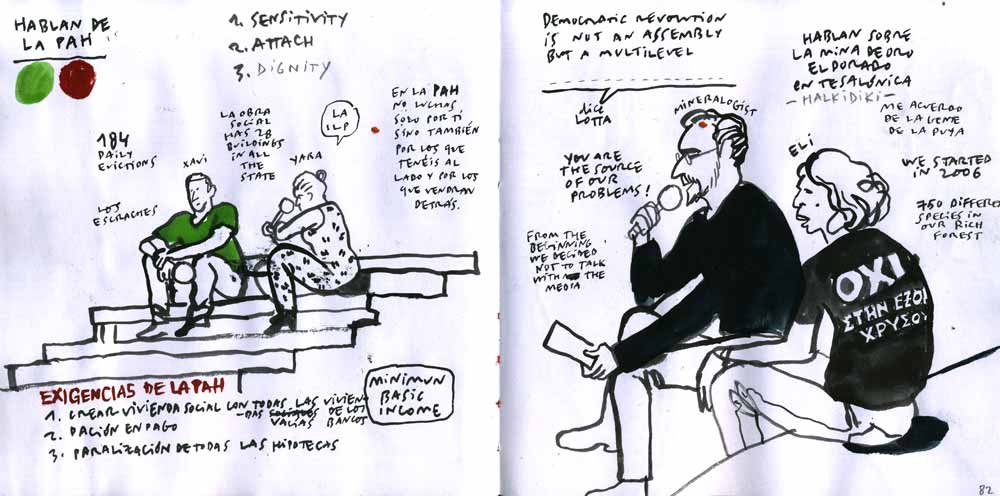 HABLAN DE
LA PAH
1. SENSITIVITY
2. ATTACH
3. DIGNITY
184
DAILY
EVICTIONS
LOS
ESCRACHES
XAVI
LA OBRA
SOCIAL
HAS 28
BUILDINGS
IN ALL
THE
STATE
YARA
LA
ILP
EN LA PAH
NO LUCHAS
SOLO POR TÍ
SINO TAMBIÉN
POR LOS QUE
TENÉIS AL
LADO Y POR LOS
QUE VENDRAN
DETRÁS.
EXIGENCIAS DE LA PAH
1. CREAR VIVIENDA SOCIAL CON TODAS LAS VIVIEN
-DAS VACIAS DE LOS BANCOS
2. DACIÓN EN PAGO
3. PARALIZACIÓN DE TODAS LAS HIPOTECAS
MINIMUN
BASIC
INCOME
DEMOCRATIC REVOLUTION
IS NOT AN ASSEMBLY
BUT A MULTILEVEL
dice
LOTTA
MINERALOGIST
YOU ARE
THE SOURCE
OF OUR
PROBLEMS!
FROM THE
BEGINNING
WE DECIDED
NOT TO TALK
WITH THE
MEDIA
HABLAN SOBRE
LA MINA DE ORO
EL DORADO
EN TESALÓNICA
-HALKIDIKI-
ME ACUERDO
DE LA GENTE
DE LA PUYA
ELI
WE STARTED
IN 2006
750 DIFFERE
SPECIES IN
OUR RICH
FOREST
ΟΧΙ
ΣΤΗΝ ΕΞΟ
ΧΡΥΣΟΥ
82